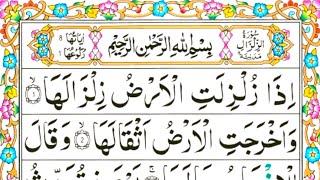 سُوْرَةُ الزِّلْزَالِ مَدَنِيَّةٌ
بِسْمِ اللّٰهِ الرَّحْمٰنِ الرَّحِيْمِ
اِذَا زُلْزِلَتِ الْاَرْضُ زِلْزَالَهَا ۙ﴿۱﴾
وَاَخْرَجَتِ الْاَرْضُ اَثْقَالَهَا ۙ﴿۲﴾ وَقَالَ